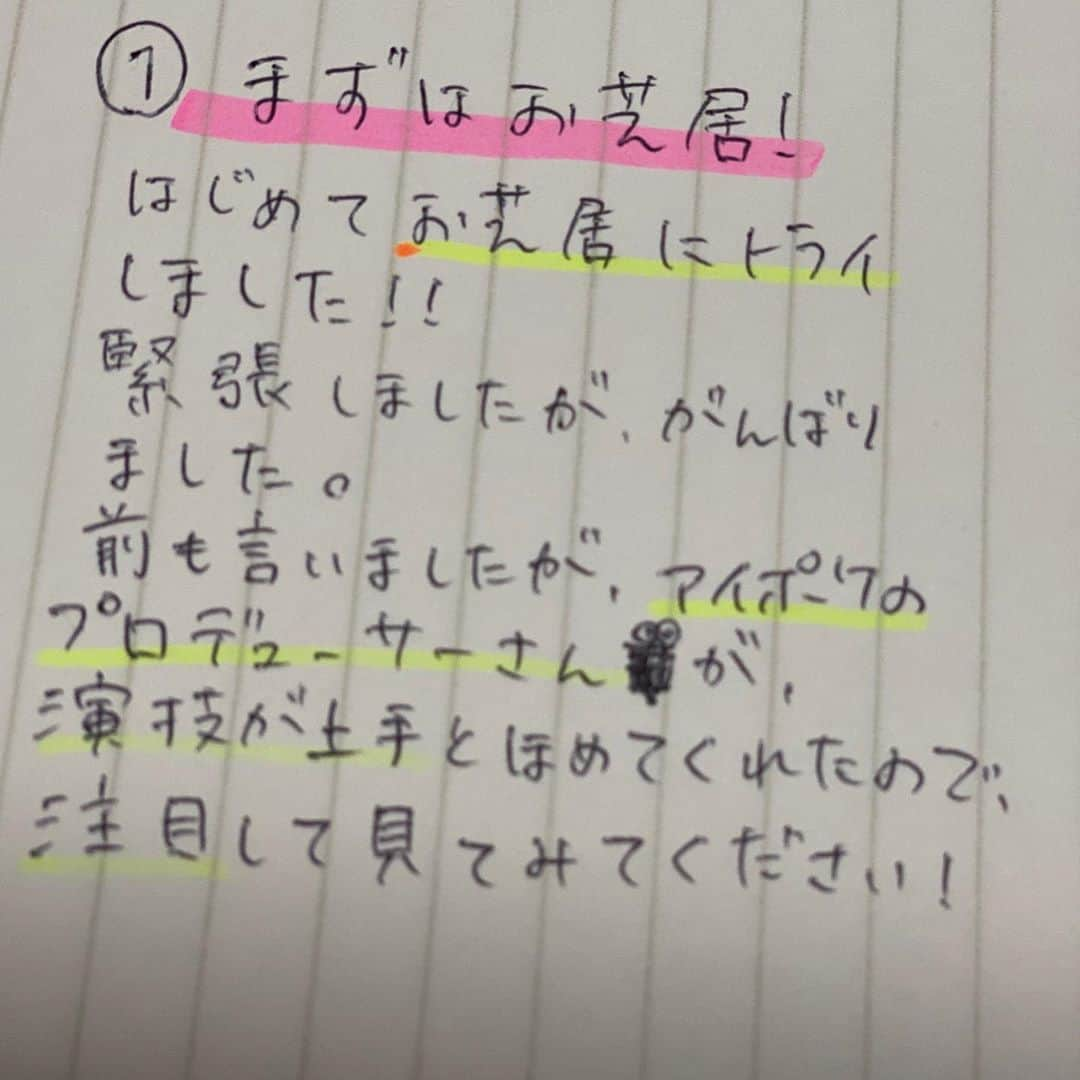 ① まずはお芝居!
はじめてお芝居にトライ
しました!!
緊張しましたが、がんばり
ました。
前も言いましたが、アイポックの
プロデューサーさんが、
演技が上手とほめてくれたので、
注目して見てみてください!